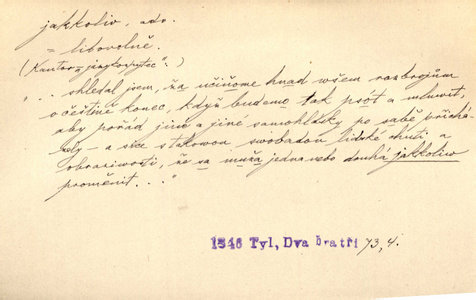 jakkoliv, adv.
= libovolně.
(Kantor „jazykozpytec“.)
„.. shledal jsem, ža učiňome hnad wšem rozbrojům
o češtině konec, když budemo tak psót a mluwit,
aby pořád jiné a jiné samohlásky po sabě přichá-
zely – a sice s takowou swobodou lidské chuti a
obraziwosti, že sa muža jedna nebo douhá jakkoliw
proměnit...“
1846 Tyl, Dva bratři 73, 4.